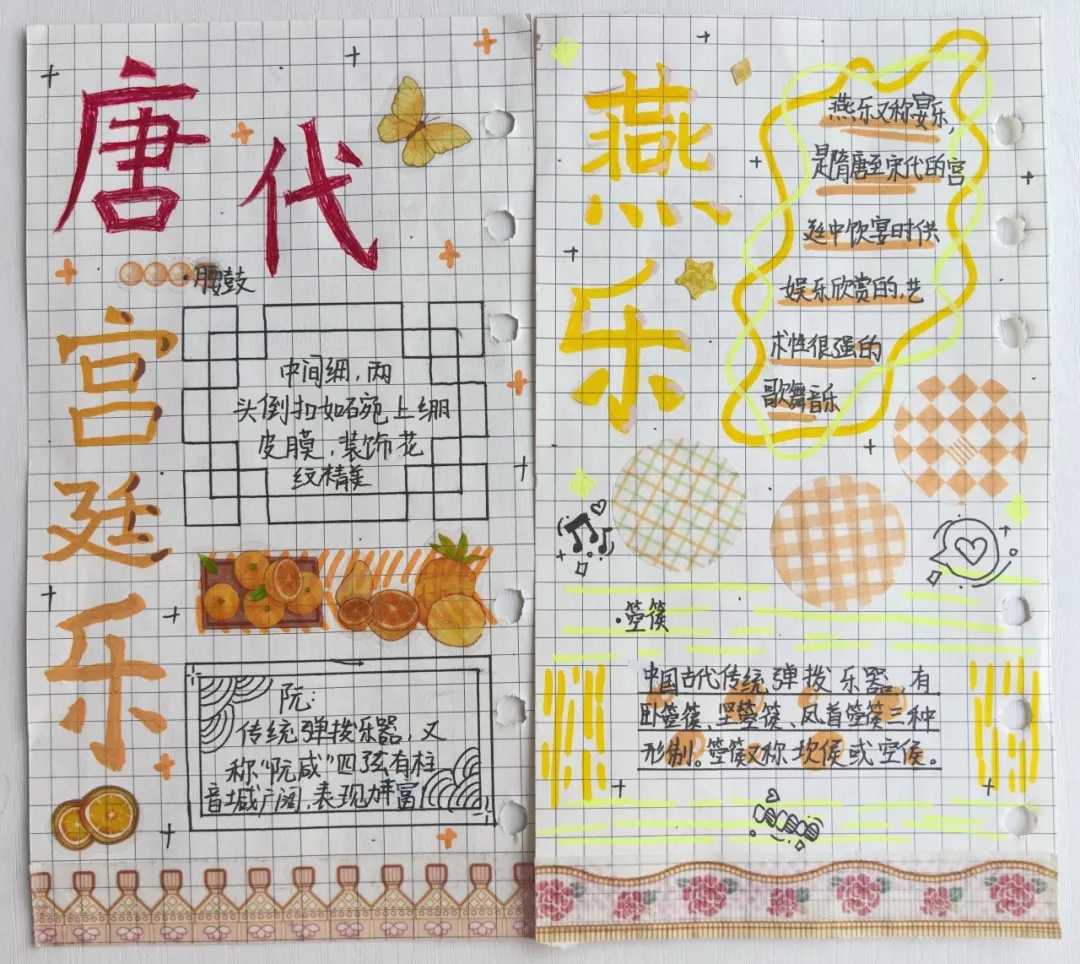 唐代
宫廷乐
·腰鼓
中间细，两
头倒扣如碗上绷
皮膜，装饰花
纹精美
阮：
传统弹拨乐器，又
称“阮咸”四弦有柱
音域广阔，表现力丰富
燕乐
燕乐又称宴乐，
是隋唐至宋代的宫
廷中饮宴时供
娱乐欣赏的，艺
术性很强的
歌舞音乐
·箜篌
中国古代传统弹拨乐器，有
卧箜篌、竖箜篌、凤首箜篌三种
形制。箜篌又称坎侯或空侯。